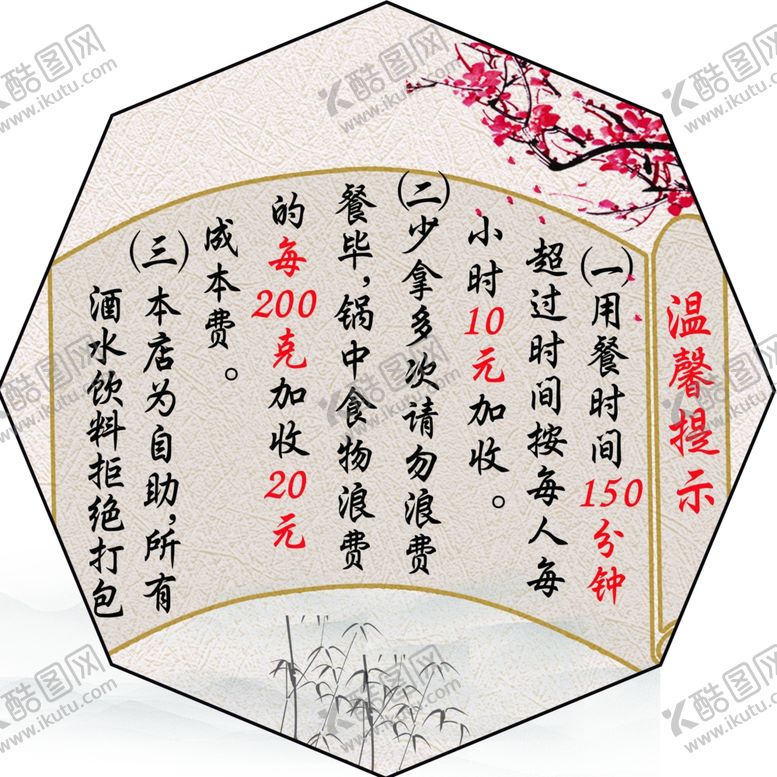 温馨提示
(一)用餐时间150分钟
超过时间按每人每
小时10元加收。
(二)少拿多次请勿浪费
餐毕,锅中食物浪费
的每200克加收20元
成本费。
(三)本店为自助,所有
酒水饮料拒绝打包
酷图网
www.ikutu.com